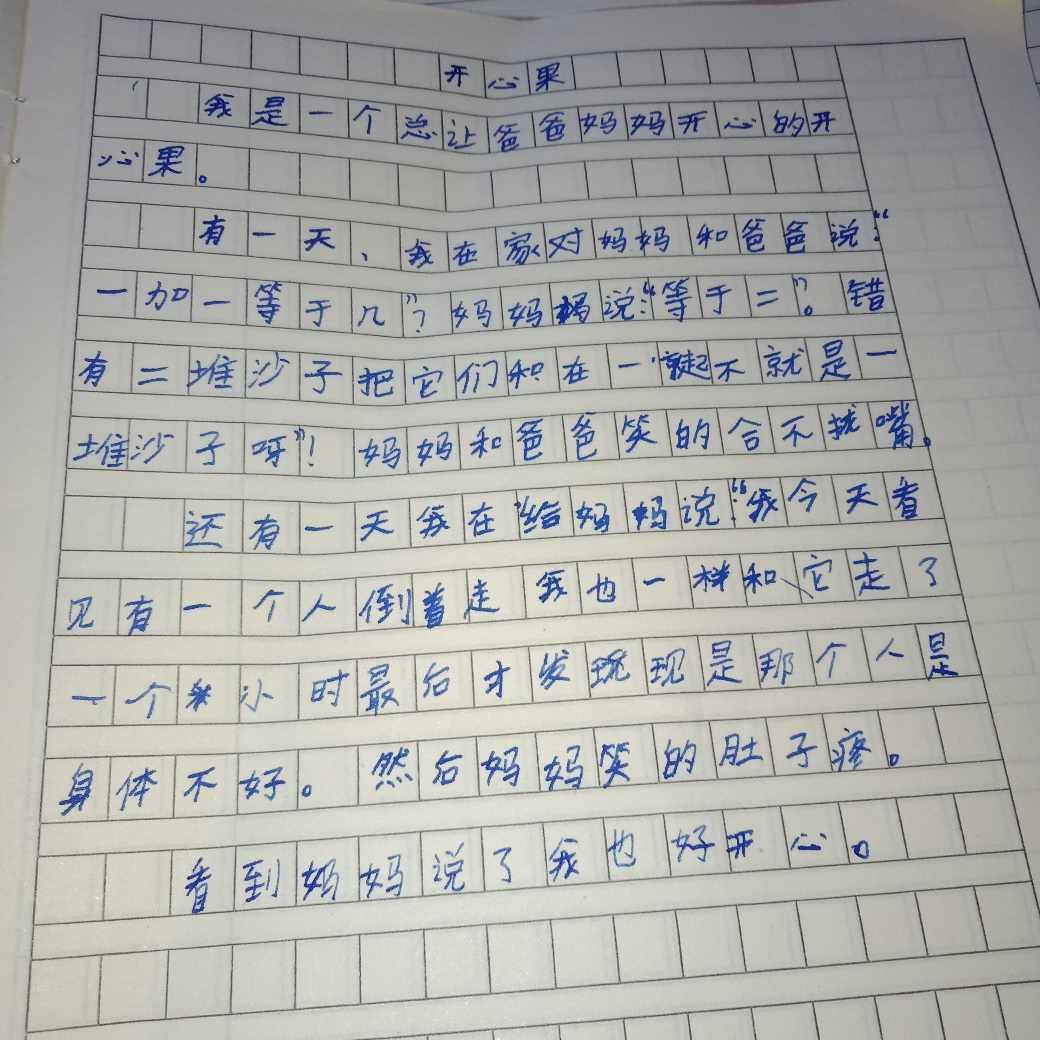 开心果
我是一个总让爸爸妈妈开心的开
心果。
有一天、我在家对妈妈和爸爸说:“
一加一等于几”?妈妈说:“等于二”。错
有二堆沙子把它们和在一起不就是一
堆沙子呀”!妈妈和爸爸笑的合不拢嘴。
还有一天我在给妈妈说:“我今天看
见有一个人倒着走我也一样和、它走了
一个小时最后才发现现是那个人是
身体不好。然后妈妈笑的肚子疼。
看到妈妈说了我也好开心。